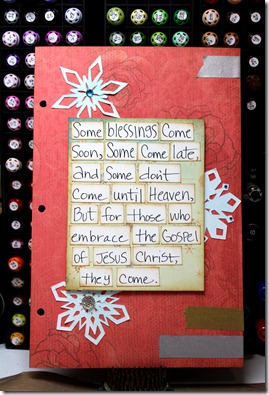 Some blessings Come
Soon, Some Come late,
and Some don't
Come until Heaven,
But for those who
embrace the Gospel
of JESUS Christ,
they Come.